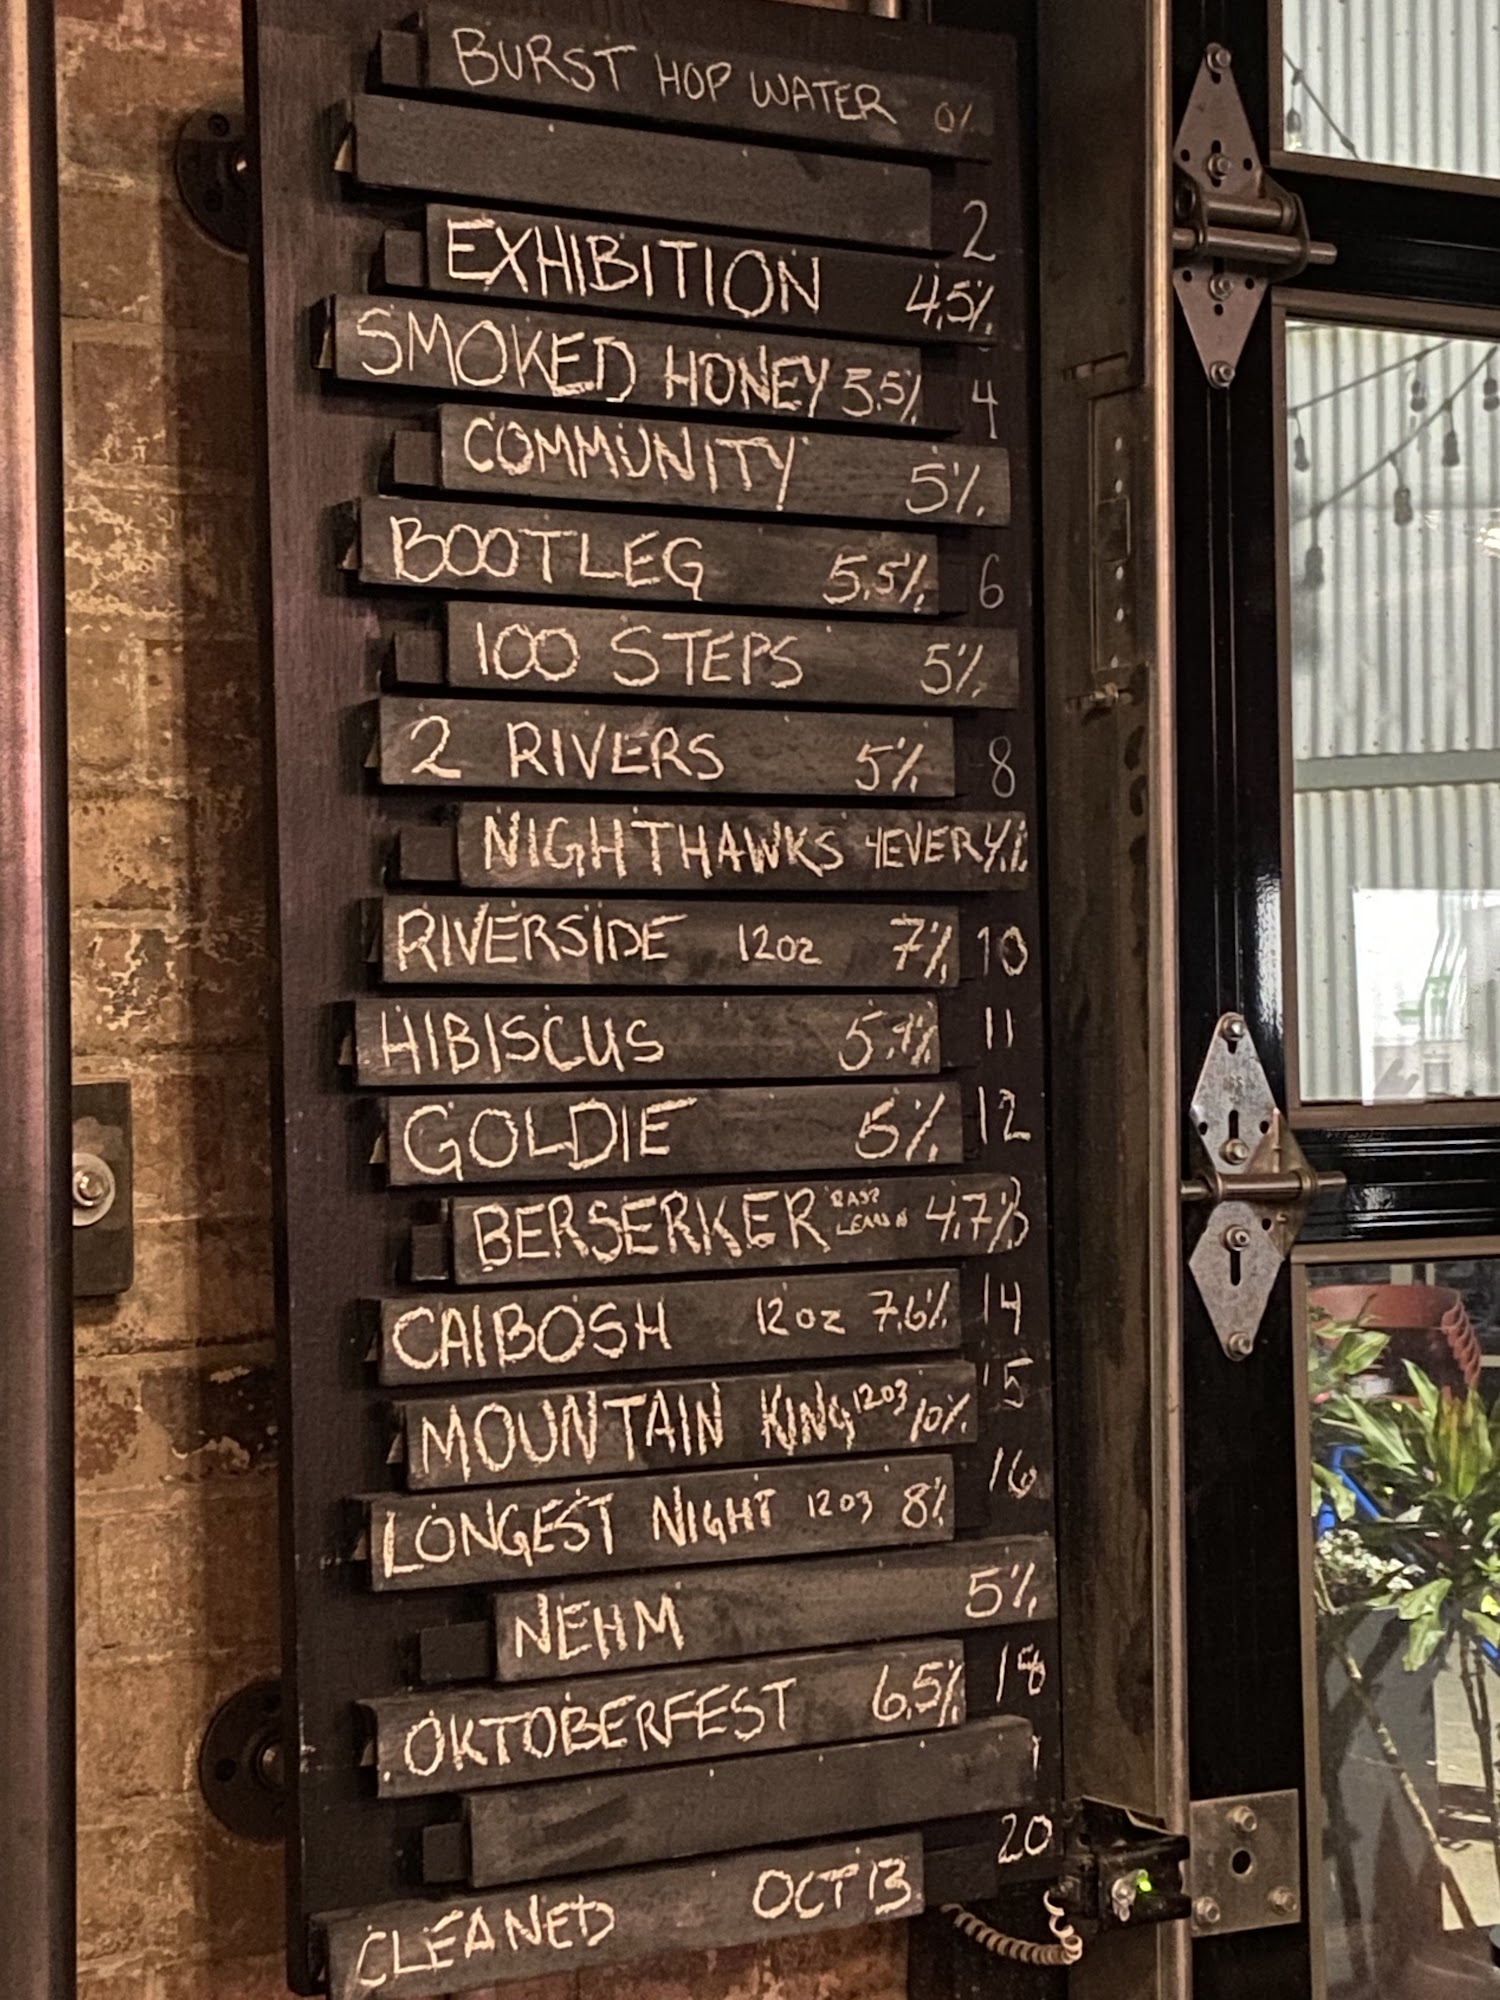 BURST HOP WATER 0%
2
EXHIBITION 4.5%
SMOKED HONEY 5.5% 4
COMMUNITY 5%
BOOTLEG 5.5% 6
100 STEPS 5%
2 RIVERS 5% 8
NIGHTHAWKS 4EVER
RIVERSIDE 12oz 7% 10
HIBISCUS 5.9% 11
GOLDIE 5% 12
BERSERKER 4.7%
CAIBOSH 12oz 7.6% 14
MOUNTAIN KING 12oz 10% 15
LONGEST NIGHT 12oz 8% 16
NEHM 5%
OKTOBERFEST 6.5% 18
20
CLEANED OCT 13